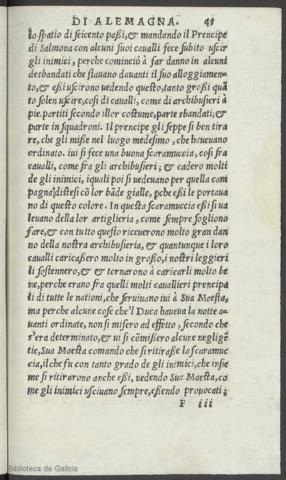 DI ALEMAGNA. 43
lo spatio di seicento passi, & mandando il Prencipe
di Salmona con alcuni suoi cavalli fece subito uscir
gli inimici, perche cominciò à far danno in alcuni
desbandati che stavano davanti il suo alloggiamen-
to, & essi uscirono vedendo questo, tanto grossi quā
to solen uscire, cosi di cavalli, come di archibusieri à
pie, partiti secondo il lor costume, parte sbandati, &
parte in squadroni. Il prencipe gli seppe si ben tira
re, che gli misse nel luogo medesimo, che havevano
ordinato. iui si fece una buona scaramuccia, cosi fra
cavalli, come fra gli archibusieri, & cadero molti
de gli inimici, iquali poi si vedevano per quella cam
pagna distesi cō lor bāde gialle, pche essi le portava
no di questo colore. In questa scaramuccia essi si va
levano della lor artiglieria, como sempre sogliono
fare, & con tutto questo riceverono molto gran dan
no della nostra archibusieria, & quantunque i loro
cavalli caricassero molto in grosso, i nostri leggieri
li sostennero, & & tornarono à caricarli molto be
ne, perche erano fra quelli molti cavallieri prencipa
li di tutte le nationi, che servivano ivi à Sua Maesta,
ma perche alcune cose che'l Duca haveva la notte a-
vanti ordinate, non si misero ad effetto, secondo che
s'era determinato, & vi si cōmissero alcune neglige̅
tie, Sua Maesta comando che si ritirasse la scaramuc
cia, il che fu con tanto grado de gli inimici, che insie
me si ritirarono anche essi, vedendo Sua Maesta, co
me gli inimici uscivano sempre, essendo provocati;
F iii
Biblioteca de Galicia